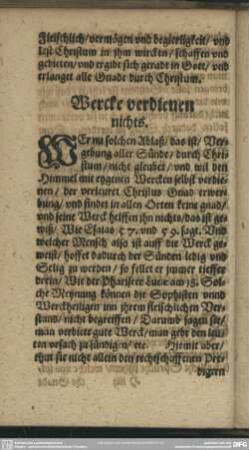 Fleischlich/ vermögen vnd begierligkeit/ vnd
lest Christum in jhm wircken/ schaffen vnd
gebieten/ vnd ergibt sich gerade in Gott/ vnd
erlanget alle Gnade durch Christum.
Wercke verdienen
nichts.
WEr nu solchen Ablaß/ das ist/ Ver-
gebung aller Sünde/ durch Chri-
stum/ nicht gleubet/ vnd wil den
Himmel mit eygenen Wercken selbst verdie-
nen/ der verleuret Christus Gnad erwer-
bung/ vnd findet in allen Orten keine gnad/
vnd seine Werck helffen ihn nichts/ das ist ge-
wiß/ Wie Esaias 57. vnd 59. sagt. Vnd
welcher Mensch also ist auff die Werck ge-
weist/ hoffet dadurch der Sünden ledig vnd
Selig zu werden/ so fellet er jmmer tieffer
drein/ Wie der Phariseer Luce am 18. Sol-
che Meynung können die Sophisten vnnd
Werckheiligen inn jhrem fleischlichen Ver-
stand/ nicht begreiffen/ Darumb sagen sie/
man verbiete gute Werck/ man gebe den leu-
ten vrsach zu sündigen/ etc. Hiemit vber-
ihn sie nicht allein den rechtschaffenen Pre-
digern